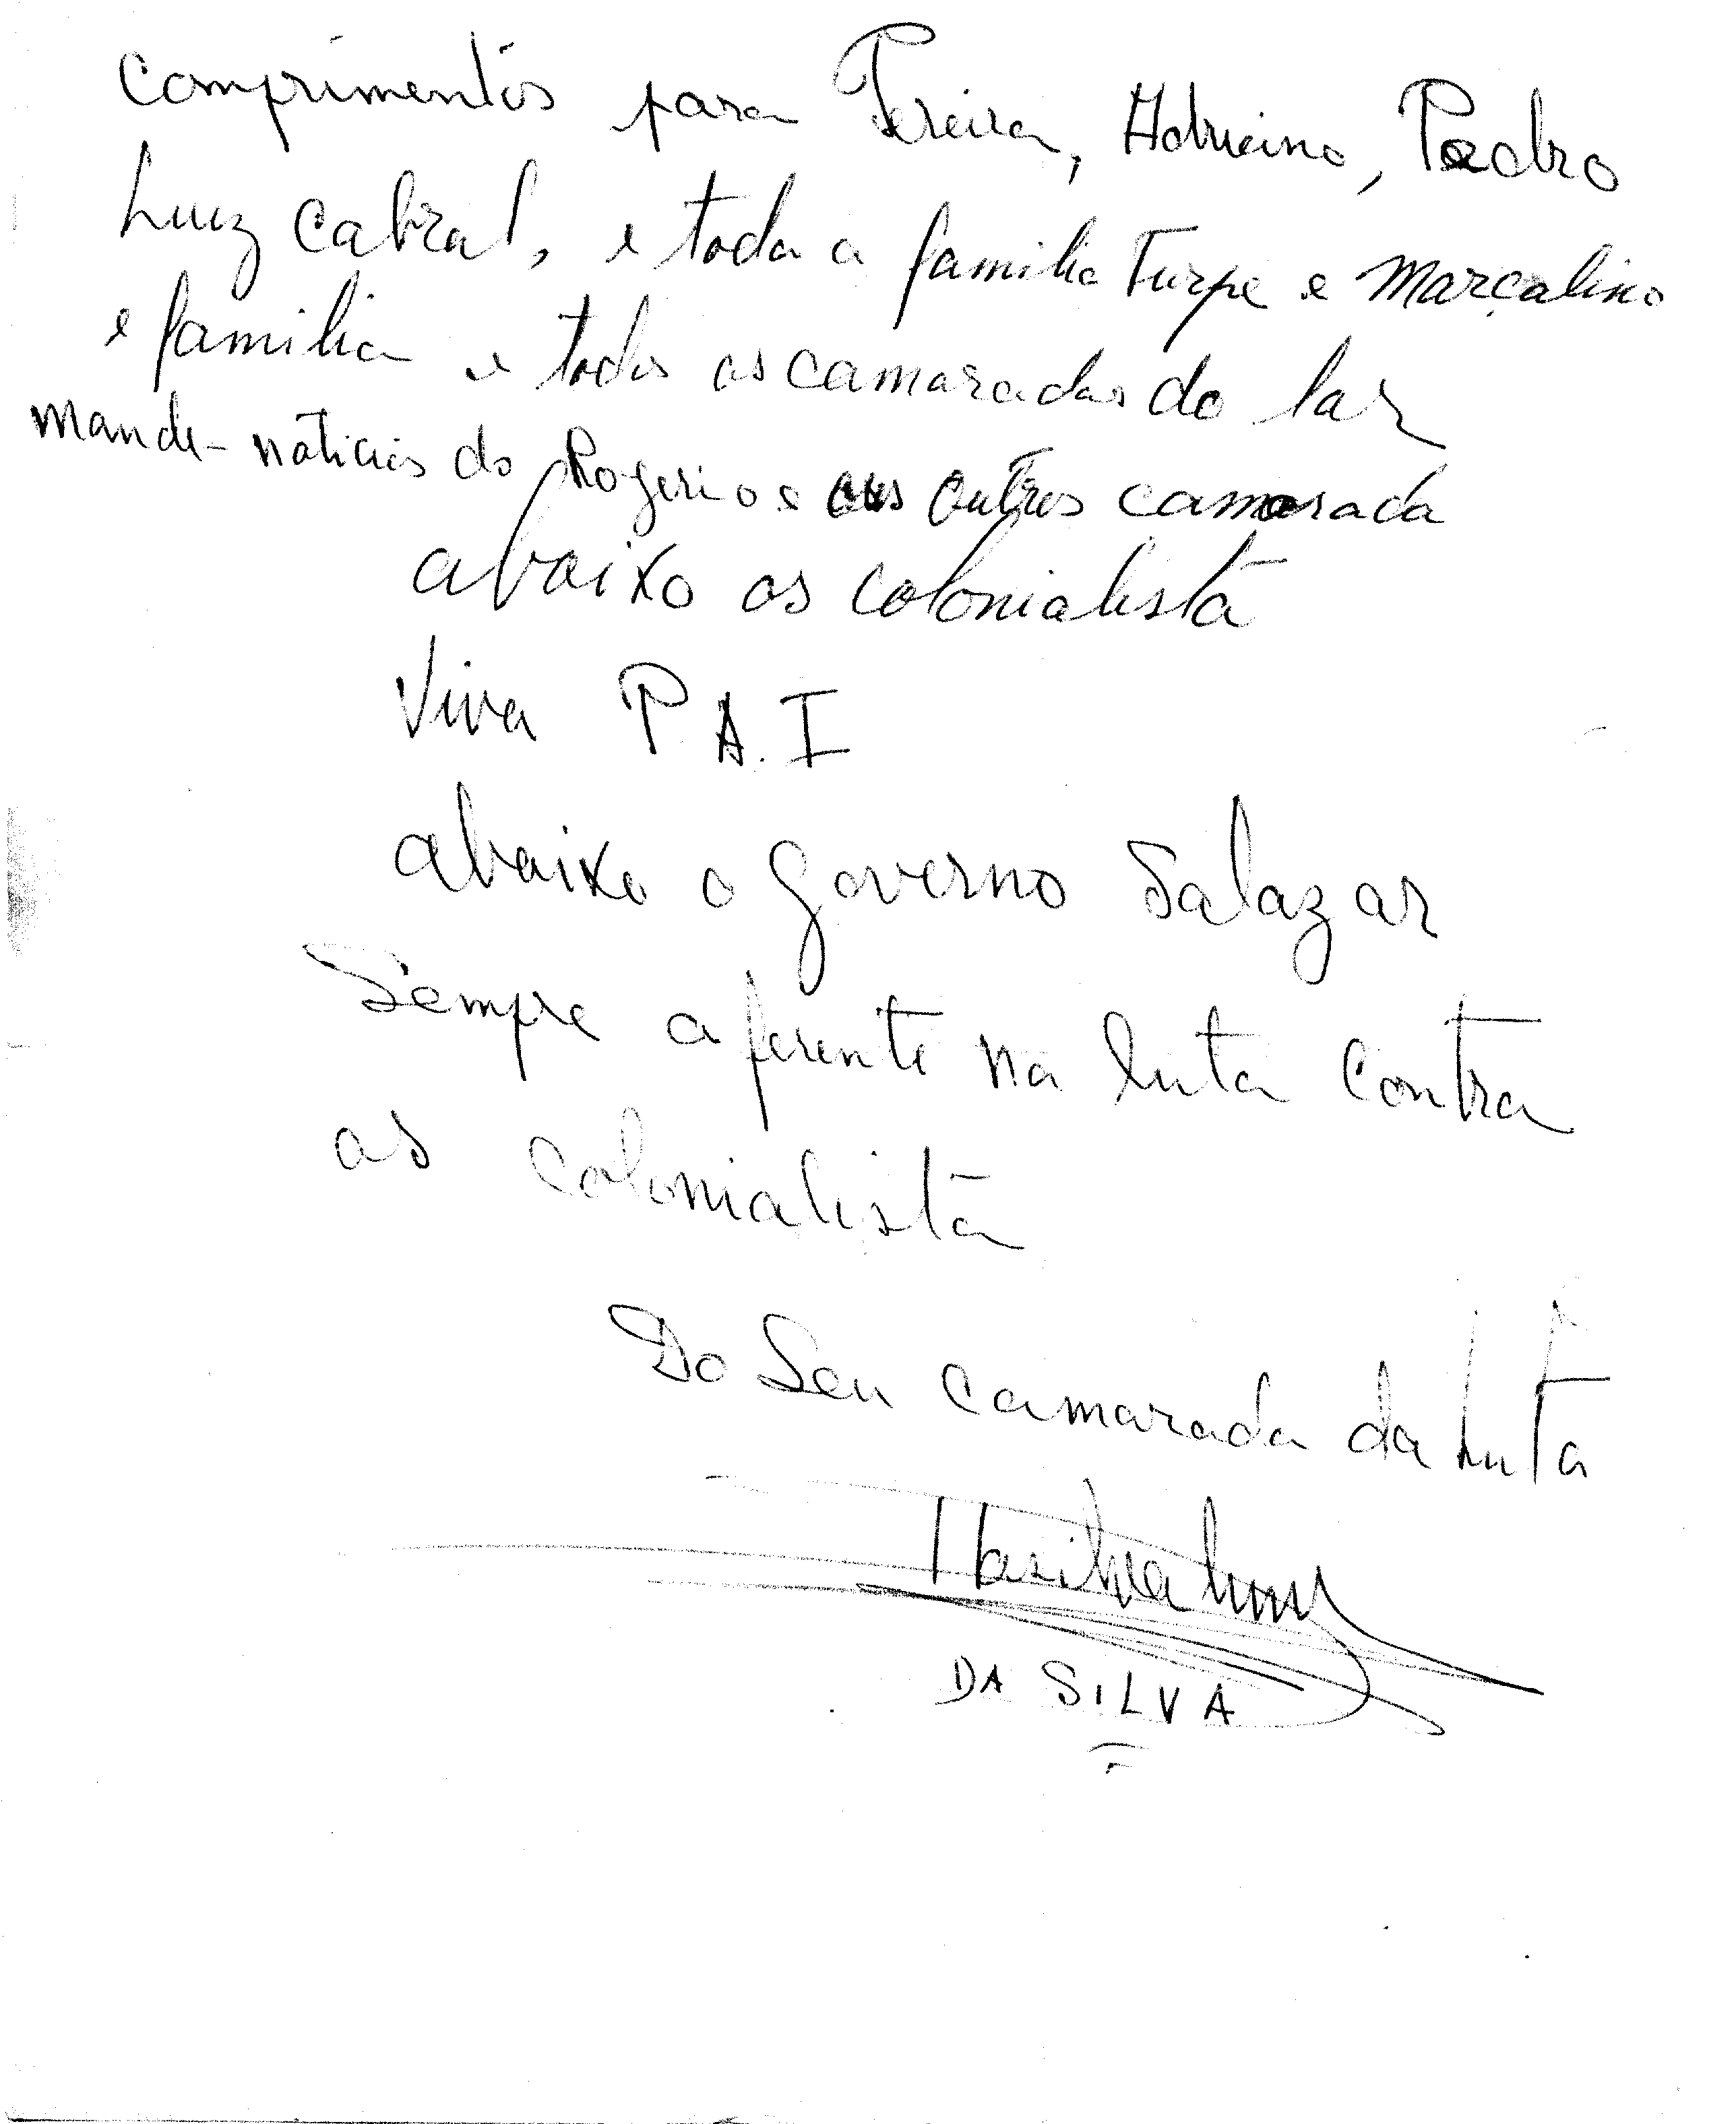 Comprimentos para Pereira, Adriano, Pedro
Luiz Cabral, e toda a familia Turpe e Marcalino
e familia e todos os camaradas do lar
Mande-noticias do Rogerio e os outros camarada
abaixo os colonialista
Viva P A. I
abaixo o governo Salazar
Sempre a ferente na luta contra
os colonialista
Do Seu camarada da luta
DA SILVA